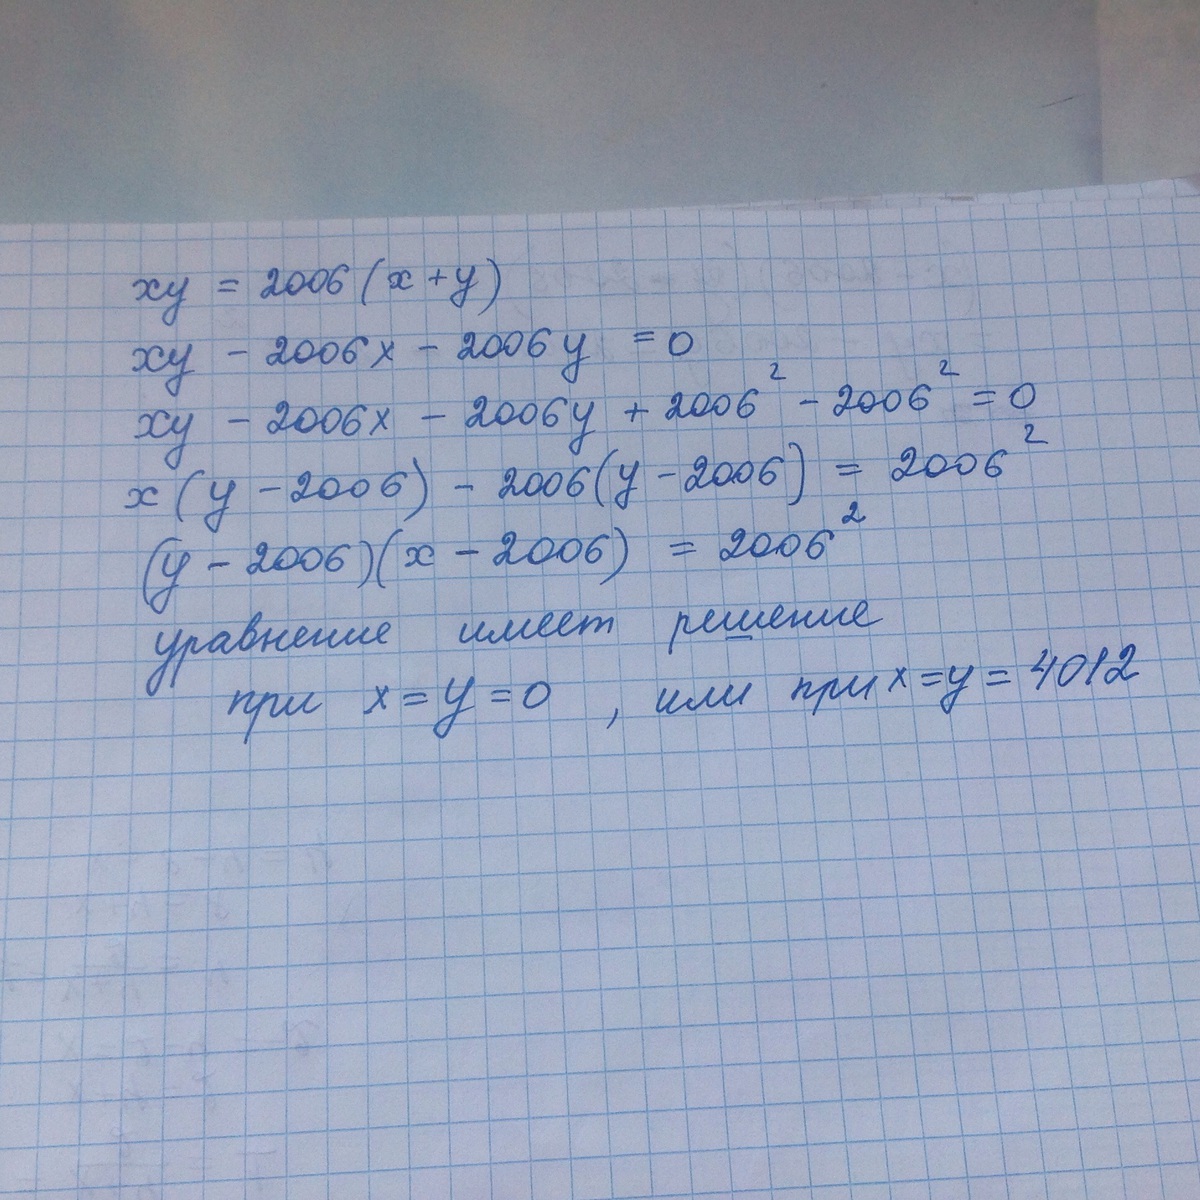 xy = 2006(x+y)
xy - 2006x - 2006y = 0
xy - 2006x - 2006y + 2006² - 2006² = 0
x(y-2006) - 2006(y-2006) = 2006²
(y-2006)(x-2006) = 2006²
уравнение имеет решение
при x=y=0, или при x=y=4012